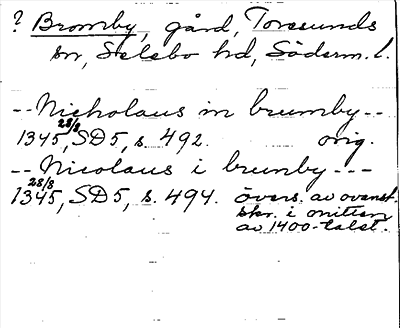 ? Bromby, gård, Toresunds
sn, Selebo hd, Söderm. l.
-- Nicholaus in brumby --
1345 28/8, SD 5, s. 492. orig.
-- Nicolaus i brumby ---
1345 28/8, SD 5, s. 494. övers. av ovanst.
skr. i
av 1400-talet.